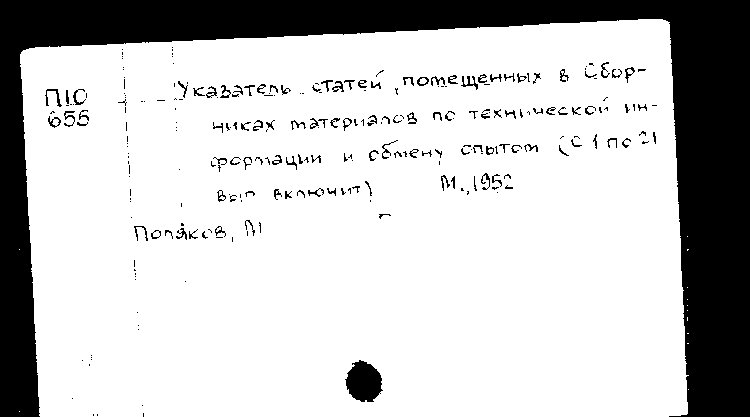 П10
655
Указатель статей, помещенных в Сбор-
никах материалов по технической ин-
формации и обмену опытом (с 1 по 21
вып включит) М., 1952
Поляков, М